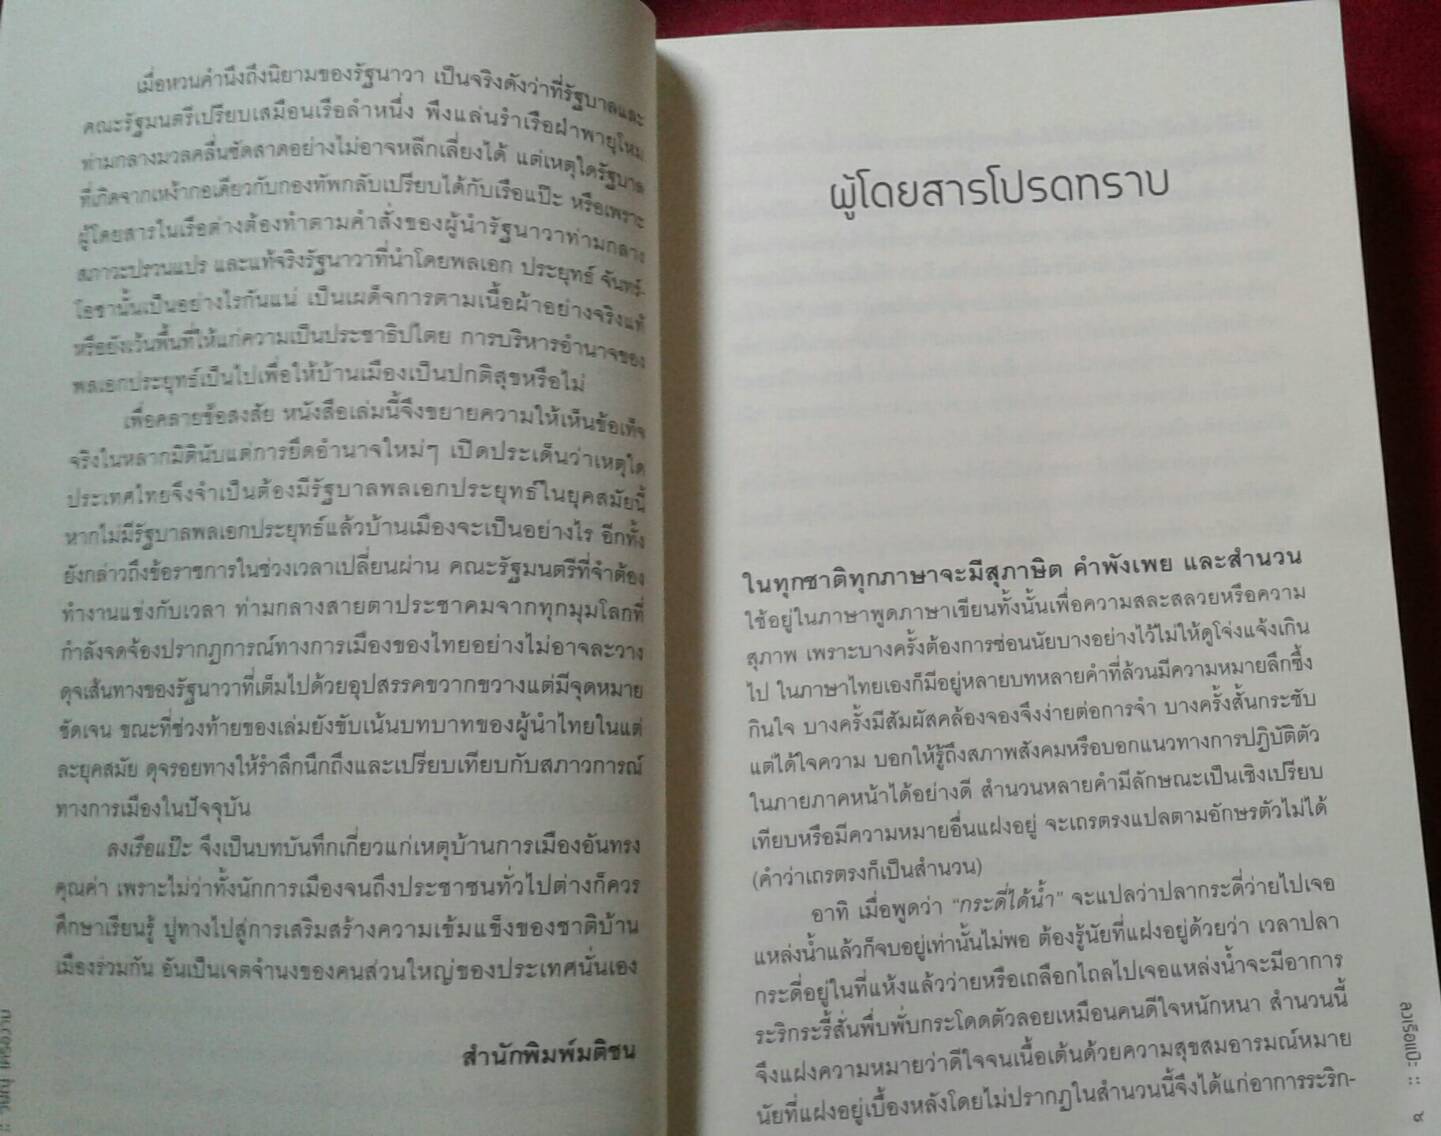 เมื่อหวนคำนึงถึงนิยามของรัฐนาวา เป็นจริงดังว่าที่รัฐบาลและ
คณะรัฐมนตรีเปรียบเสมือนเรือลำหนึ่ง พึงแล่นรำเรือฝ่าพายุโหม
ท่ามกลางมวลคลื่นซัดสาดอย่างไม่อาจหลีกเลี่ยงได้ แต่เหตุใดรัฐบาล
ที่เกิดจากเหง้ากอเดียวกับกองทัพกลับเปรียบได้กับเรือแป๊ะ หรือเพราะ
ผู้โดยสารในเรือต่างต้องทำตามคำสั่งของผู้นำรัฐนาวาท่ามกลาง
สภาวะปรวนแปร และแท้จริงรัฐนาวาที่นำโดยพลเอก ประยุทธ์ จันทร์-
โอชานั้นเป็นอย่างไรกันแน่ เป็นเผด็จการตามเนื้อผ้าอย่างจริงแท้
หรือยังเว้นพื้นที่ให้แก่ความเป็นประชาธิปไตย การบริหารอำนาจของ
พลเอกประยุทธ์เป็นไปเพื่อให้บ้านเมืองเป็นปกติสุขหรือไม่
เพื่อคลายข้อสงสัย หนังสือเล่มนี้จึงขยายความให้เห็นข้อเท็จ
จริงในหลากมิตินับแต่การยึดอำนาจใหม่ๆ เปิดประเด็นว่าเหตุใด
ประเทศไทยจึงจำเป็นต้องมีรัฐบาลพลเอกประยุทธ์ในยุคสมัยนี้
หากไม่มีรัฐบาลพลเอกประยุทธ์แล้วบ้านเมืองจะเป็นอย่างไร อีกทั้ง
ยังกล่าวถึงข้อราชการในช่วงเวลาเปลี่ยนผ่าน คณะรัฐมนตรีที่จำต้อง
ทำงานแข่งกับเวลา ท่ามกลางสายตาประชาคมจากทุกมุมโลกที่
กำลังจดจ้องปรากฏการณ์ทางการเมืองของไทยอย่างไม่อาจละวาง
ดุจเส้นทางของรัฐนาวาที่เต็มไปด้วยอุปสรรคขวากขวางแต่มีจุดหมาย
ชัดเจน ขณะที่ช่วงท้ายของเล่มยังขับเน้นบทบาทของผู้นำไทยในแต่
ละยุคสมัย ดุจรอยทางให้รำลึกนึกถึงและเปรียบเทียบกับสภาวการณ์
ทางการเมืองในปัจจุบัน
ลงเรือแป๊ะ จึงเป็นบทบันทึกเกี่ยวแก่เหตุบ้านการเมืองอันทรง
คุณค่า เพราะไม่ว่าทั้งนักการเมืองจนถึงประชาชนทั่วไปต่างก็ควร
ศึกษาเรียนรู้ ปูทางไปสู่การเสริมสร้างความเข้มแข็งของชาติบ้าน
เมืองร่วมกัน อันเป็นเจตจำนงของคนส่วนใหญ่ของประเทศนั่นเอง
สำนักพิมพ์มติชน
ผู้โดยสารโปรดทราบ
ในทุกชาติทุกภาษาจะมีสุภาษิต คำพังเพย และสำนวน
ใช้อยู่ในภาษาพูดภาษาเขียนทั้งนั้นเพื่อความสละสลวยหรือความ
สุภาพ เพราะบางครั้งต้องการซ่อนนัยบางอย่างไว้ไม่ให้ดูโจ่งแจ้งเกิน
ไป ในภาษาไทยเองก็มีอยู่หลายบทหลายคำที่ล้วนมีความหมายลึกซึ้ง
กินใจ บางครั้งมีสัมผัสคล้องจองจึงง่ายต่อการจำ บางครั้งสั้นกระชับ
แต่ได้ใจความ บอกให้รู้ถึงสภาพสังคมหรือบอกแนวทางการปฏิบัติตัว
ในภายภาคหน้าได้อย่างดี สำนวนหลายคำมีลักษณะเป็นเชิงเปรียบ
เทียบหรือมีความหมายอื่นแฝงอยู่ จะเถรตรงแปลตามอักษรตัวไม่ได้
(คำว่าเถรตรงก็เป็นสำนวน)
อาทิ เมื่อพูดว่า "กระดี่ได้น้ำ" จะแปลว่าปลากระดี่ว่ายไปเจอ
แหล่งน้ำแล้วก็จบอยู่เท่านั้นไม่พอ ต้องรู้นัยที่แฝงอยู่ด้วยว่า เวลาปลา
กระดี่อยู่ในที่แห้งแล้วว่ายหรือเถลือกไถลไปเจอแหล่งน้ำจะมีอาการ
ระริกระรี้สั่นพึ่บพั่บกระโดดตัวลอยเหมือนคนดีใจหนักหนา สำนวนนี้
จึงแฝงความหมายว่าดีใจจนเนื้อเต้นด้วยความสุขสมอารมณ์หมาย
นัยที่แฝงอยู่เบื้องหลังโดยไม่ปรากฏในสำนวนนี้จึงได้แก่อาการระริก-
ลงเรือแป๊ะ ::
๙